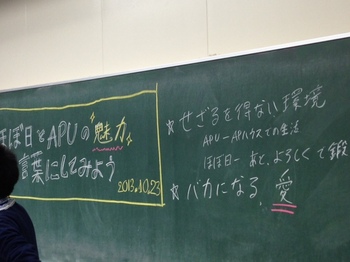 ほぼ日とAPUの魅力
言葉にしてみよう
2013.10.23
☆せざるを得ない環境
APU-APハウスでの生活
ほぼ日-あと、よろしくて鍛
☆バカになる、愛